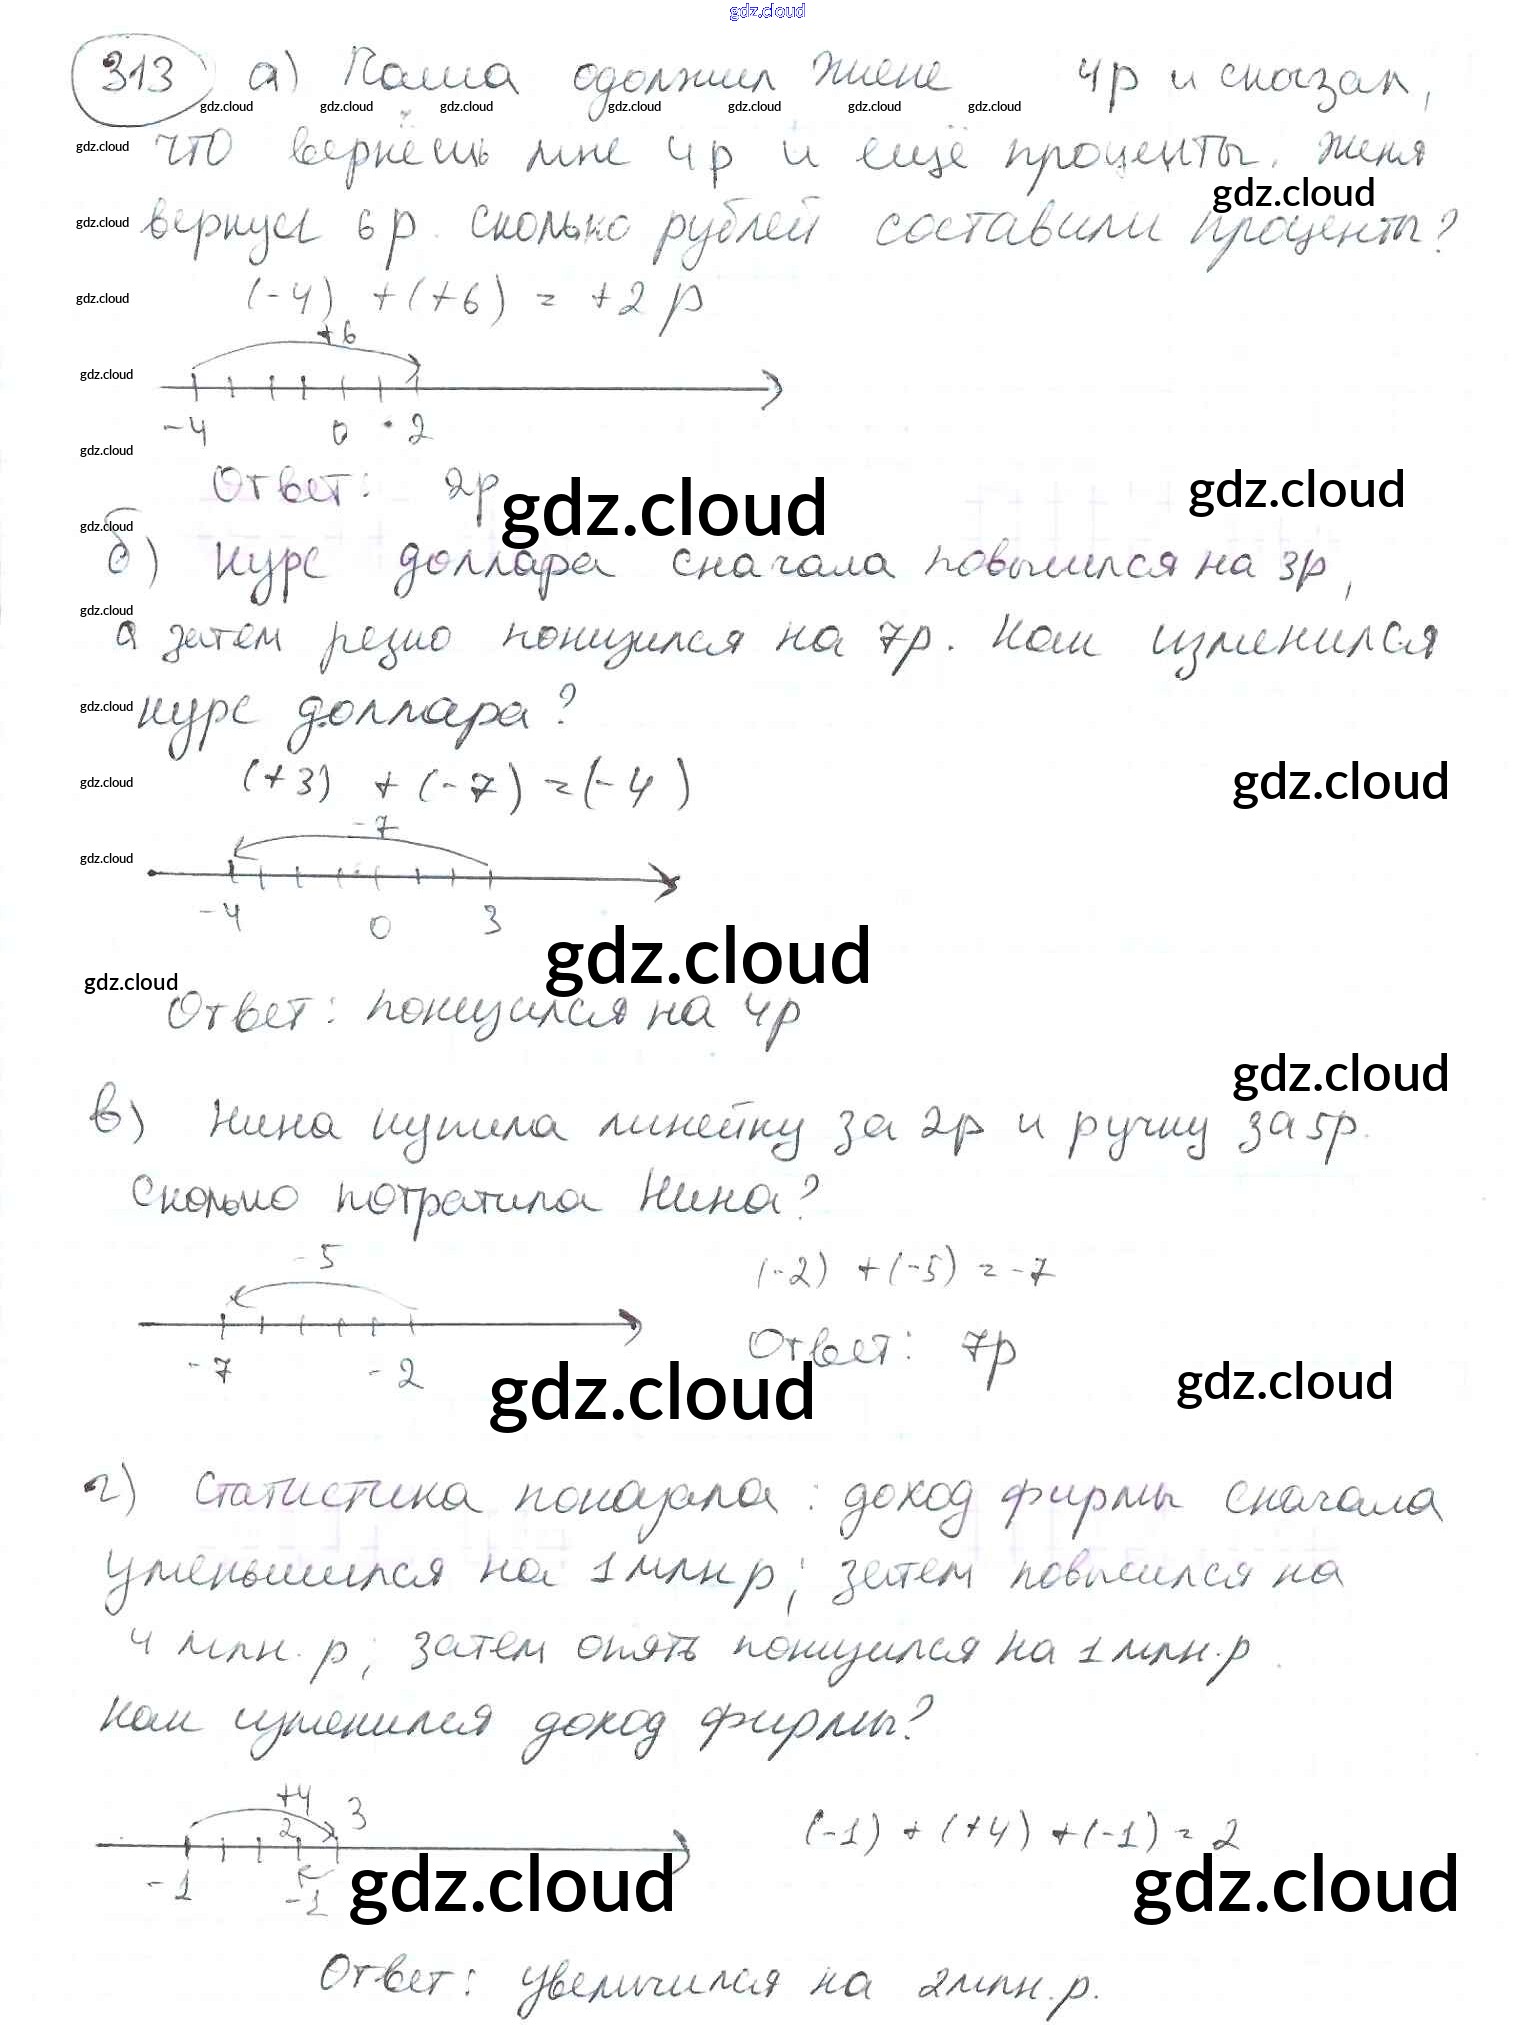 gdz.cloud
313 а) Паша одолжил Жене 4р и сказал,
gdz.cloud gdz.cloud gdz.cloud gdz.cloud gdz.cloud gdz.cloud gdz.cloud
gdz.cloud что вернёшь мне 4р и ещё проценты. Женя
gdz.cloud
gdz.cloud вернул 6р. Сколько рублей составили проценты?
gdz.cloud (-4) +(+6) = +2р
+6
gdz.cloud
-4 0 2
gdz.cloud
Ответ: 2р gdz.cloud gdz.cloud
gdz.cloud
б) Курс доллара сначала повысился на 3р,
gdz.cloud
а затем резко понизился на 7р. Как изменился
gdz.cloud курс доллара?
gdz.cloud (+3) +(-7) =(-4) gdz.cloud
-7
gdz.cloud
-4 0 3
gdz.cloud
gdz.cloud
Ответ: понизился на 4р
gdz.cloud
в) Нина купила линейку за 2р и ручку за 5р.
Сколько потратила Нина?
-5 (-2) +(-5) =-7
-7 -2 Ответ: 7р
gdz.cloud gdz.cloud
г) Статистика показала: доход фирмы сначала
уменьшился на 1 млн р; затем повысился на
4 млн. р; затем опять понизился на 1 млн. р.
Как изменился доход фирмы?
+4 3
2 (-1) + (+4) +(-1) = 2
-1 -1 gdz.cloud gdz.cloud
Ответ: увеличился на 2 млн. р.